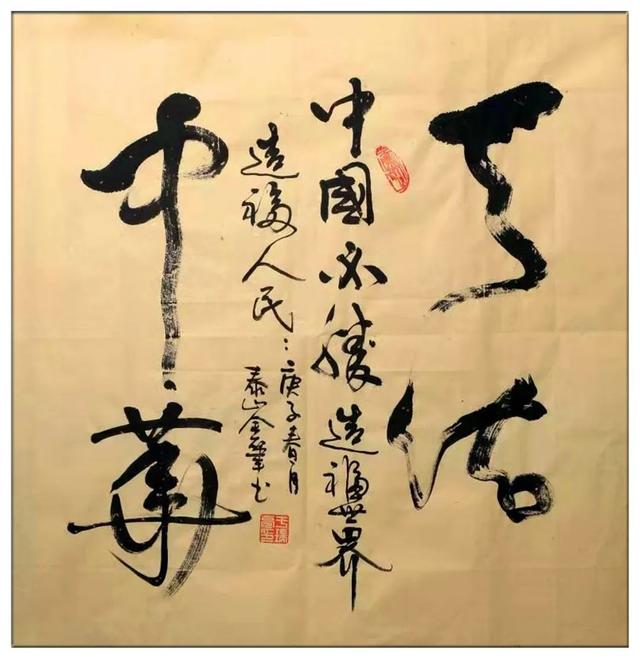 天佑
中華
中國必勝造福世界
造福人民：庚子春月
泰山金书